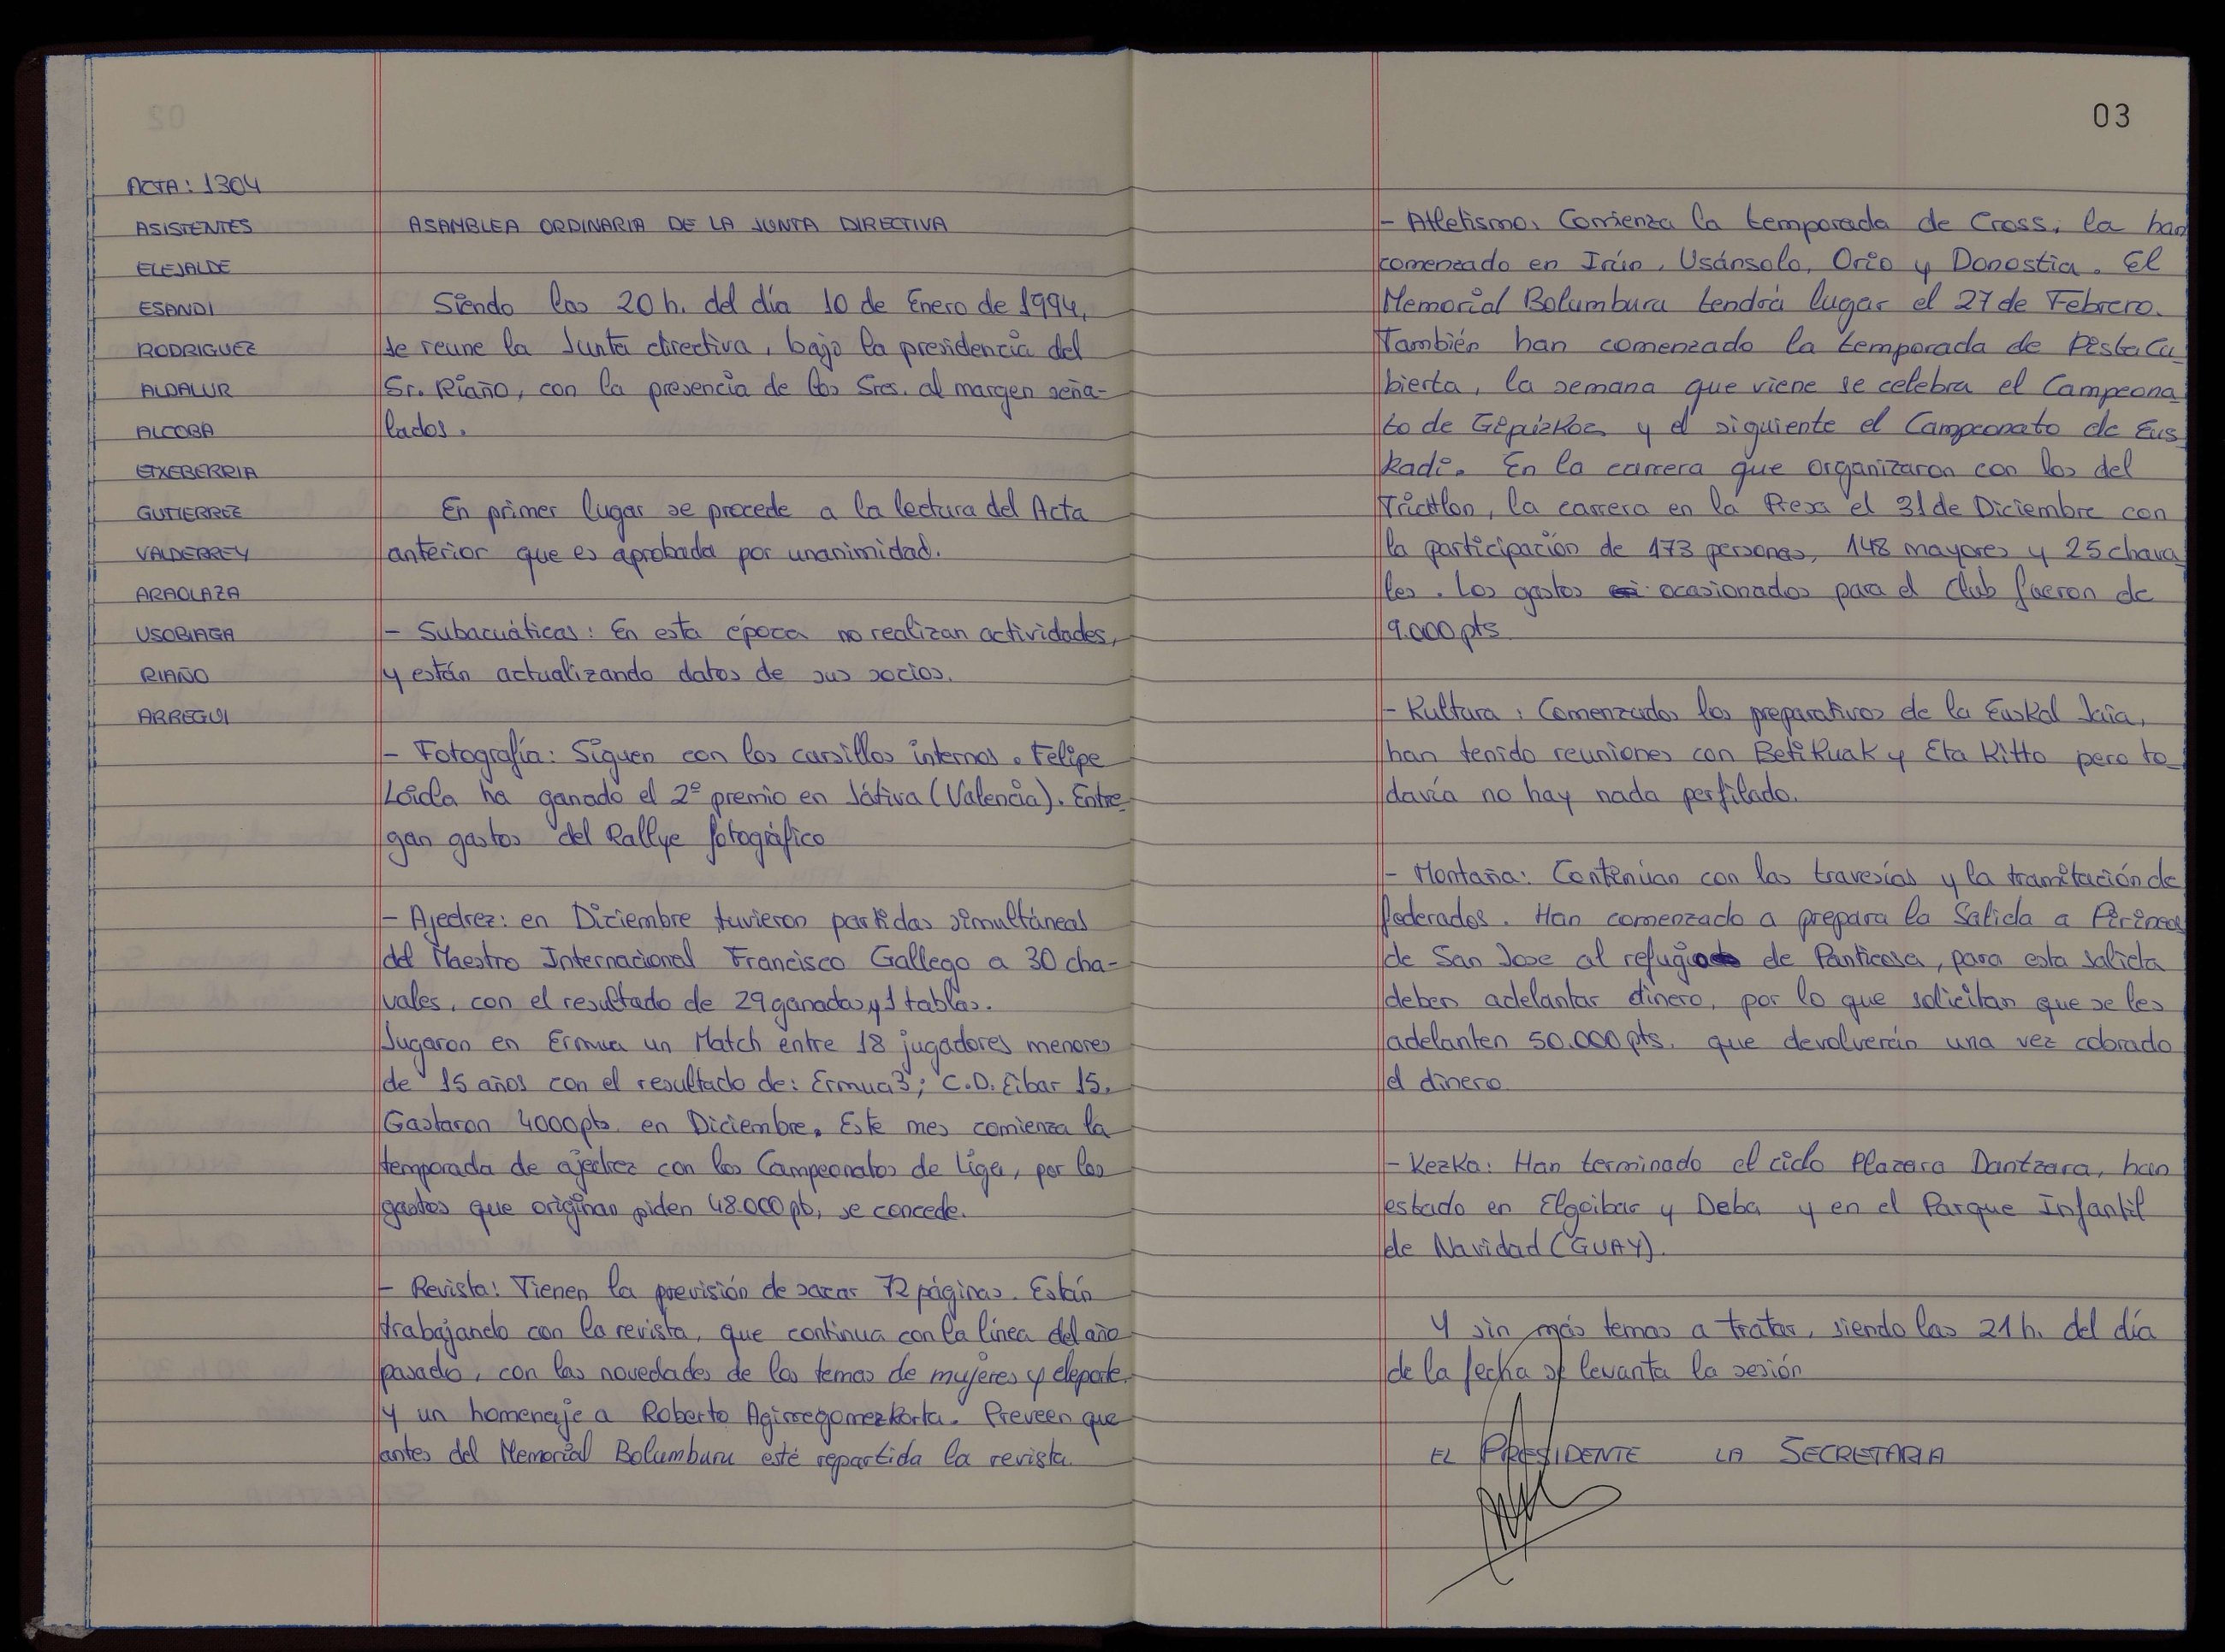 ACTA: 1304
ASISTENTES
ELEJALDE
ESANDI
RODRIGUEZ
ALDALUR
ALCOBA
ETXEBERRIA
GUTIERREZ
VALDERREY
ARAOLAZA
USOBIAGA
RIAÑO
ARREGUI
ASAMBLEA ORDINARIA DE LA JUNTA DIRECTIVA
Siendo las 20 h. del día 10 de Enero de 1994,
se reune la Junta directiva, bajo la presidencia del
Sr. Riaño, con la presencia de los Sres. al margen seña-
lados.
En primer lugar se procede a la lectura del Acta
anterior que es aprobada por unanimidad.
- Subacuáticas: En esta época no realizan actividades,
y están actualizando datos de sus socios.
- Fotografía: Siguen con los cursillos internos. Felipe
Loiola ha ganado el 2º premio en Játiva (Valencia). Entre-
gan gastos del Rallye fotográfico
- Ajedrez: en Diciembre tuvieron partidas simultáneas
del Maestro Internacional Francisco Gallego a 30 cha-
vales, con el resultado de 29 ganadas y 1 tablas.
Jugaron en Ermua un Match entre 18 jugadores menores
de 15 años con el resultado de: Ermua 3; C.D. Eibar 15.
Gastaron 4000 pts. en Diciembre. Este mes comienza la
temporada de ajedrez con los Campeonatos de Liga, por los
gastos que originan piden 48.000 pts, se concede.
- Revista: Tienen la previsión de sacar 72 páginas. Están
trabajando con la revista, que continua con la línea del año
pasado, con las novedades de los temas de mujeres y deporte.
y un homenaje a Roberto Agirregomezkorta. Preveen que
antes del Memorial Bolumburu esté repartida la revista.
03
- Atletismo: Comienza la temporada de Cross, la han
comenzado en Irún, Usánsolo, Orio y Donostia. El
Memorial Bolumburu tendrá lugar el 27 de Febrero.
También han comenzado la temporada de Pista Cu-
bierta, la semana que viene se celebra el Campeona-
to de Gipuzkoa y el siguiente el Campeonato de Eus-
kadi. En la carrera que organizaron con los del
Triathlon, la carrera en la Presa el 31 de Diciembre con
la participación de 173 personas, 148 mayores y 25 chava-
les. Los gastos ocasionados para el Club fueron de
9.000 pts.
- Kultura: Comenzados los preparativos de la Euskal Jaia,
han tenido reuniones con Beti Kuak y Eta Kitto pero to-
davía no hay nada perfilado.
- Montaña: Continúan con las travesías y la tramitación de
federados. Han comenzado a prepara la Salida a Pirineos
de San Jose al refugio de Panticosa, para esta salida
deben adelantar dinero, por lo que solicitan que se les
adelanten 50.000 pts. que devolverán una vez cobrado
el dinero.
- Kezka: Han terminado el ciclo Plazara Dantzara, han
estado en Elgoibar y Deba y en el Parque Infantil
de Navidad (GUAY).
Y sin más temas a tratar, siendo las 21 h. del día
de la fecha se levanta la sesión
EL PRESIDENTE LA SECRETARIA